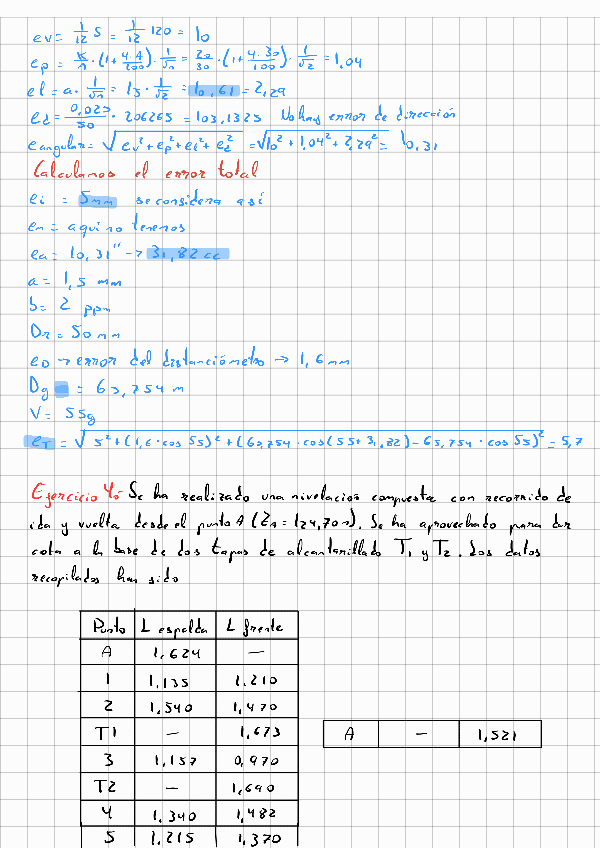 ev = 1/12 s = 1/12 120 = 10
ep = K/A · (1 + 4·A/100) · 1/√n = 20/30 · (1 + 4·30/100) · 1/√2 = 1,04
el = a · 1/√n = 15 · 1/√2 = 10,61 = 2,29
ed = 0,025/50 · 206265 = 103,1325 No hay error de dirección
eangular = √ev² + ep² + el² + ed² = √10² + 1,04² + 2,29² = 10,31
Calculamos el error total
ei = 5mm se considera así
em = aqui no tenemos
ea = 10,31" → 31,82 cc
a = 1,5 mm
b = 2 ppm
Dr = 50 mm
eD → error del distanciómetro → 1,6 mm
Dg = 65,754 m
V = 55g
eT = √5² + (1,6 · cos 55)² + (65,754 · cos(55 + 31,82) - 65,754 · cos 55)² = 5,7
Ejercicio 4: Se ha realizado una nivelación compuesta con recorrido de
ida y vuelta desde el punto A (ZA = 124,70 m). Se ha aprovechado para dar
cota a la base de dos tapas de alcantarillado T1 y T2. Los datos
recopilados han sido
Punto L espalda L frente
A 1,624 —
1 1,135 1,210
2 1,540 1,470
T1 — 1,673
3 1,157 0,970
T2 — 1,690
4 1,340 1,482
5 1,215 1,370
A — 1,521